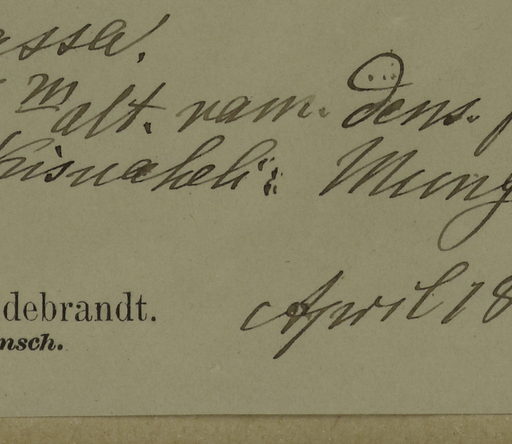 assa.
m alt. ram. dens.
Kisuaheli: Mung
debrandt.
April 18
nsch.